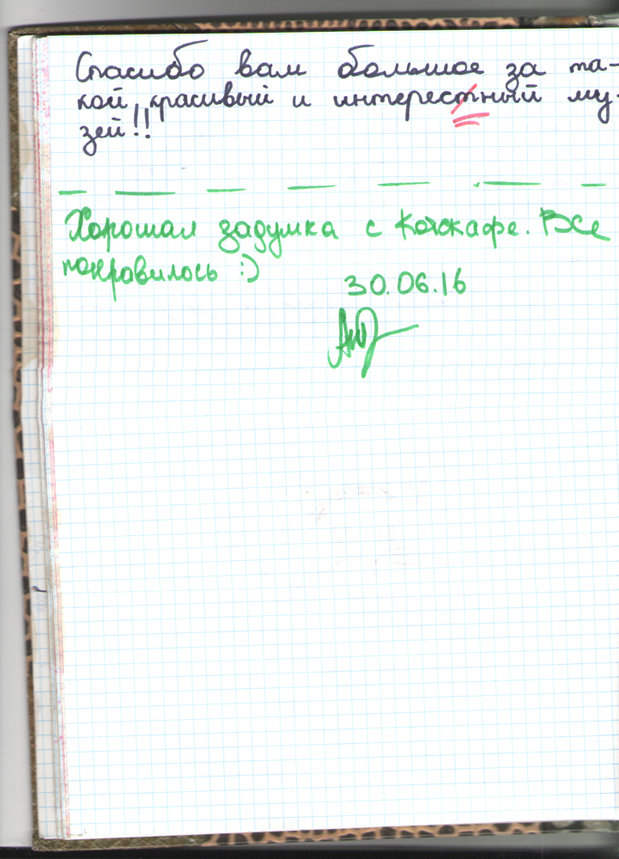 Спасибо вам большое за та-
кой красивый и интерестный му-
зей!!
Хорошая задумка с Котокафе. Все
понравилось :)
30.06.16